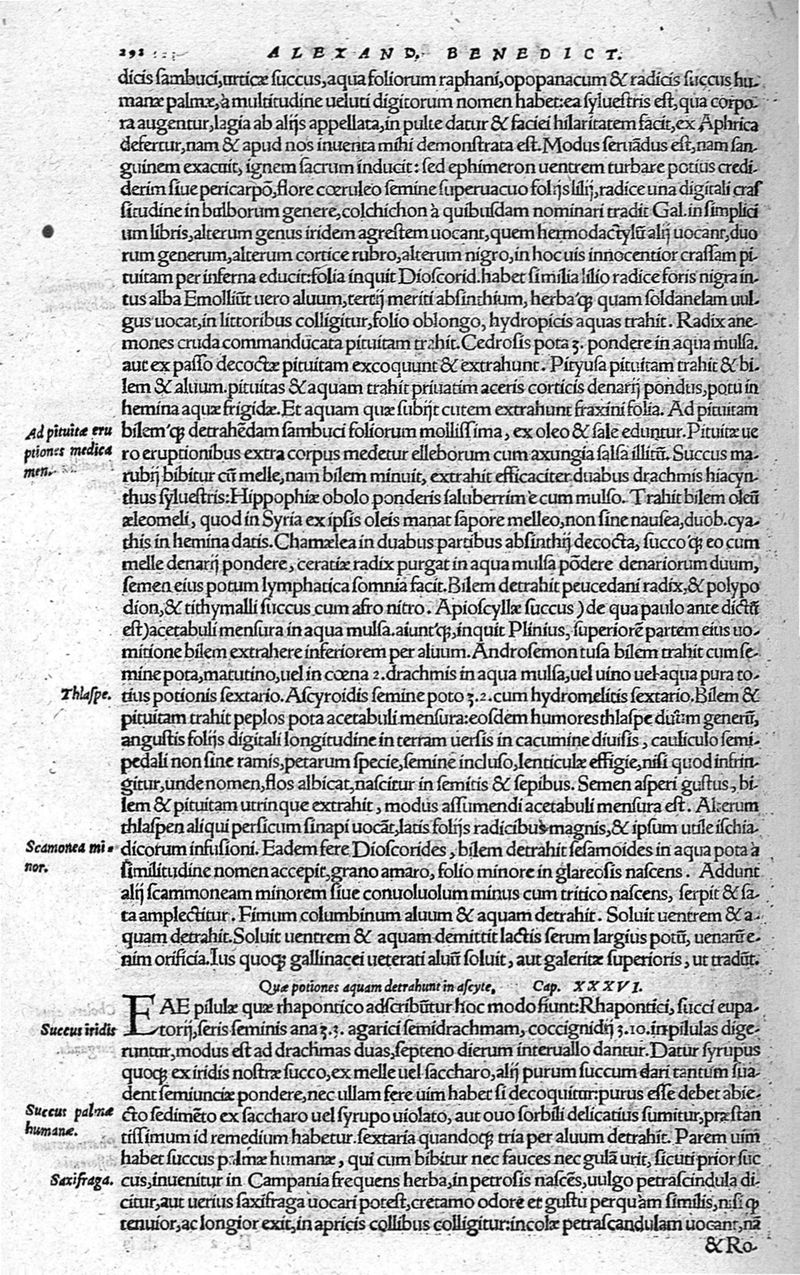 292 ALEXAND. BENEDICT.
dicis sambuci, urticæ succus, aqua foliorum raphani, opopanacum & radicis succus hu-
manæ palmæ, à multitudine ueluti digitorum nomen habet: ea syluestris est, qua corpo-
ra augentur, lagia ab alijs appellata, in pulte datur & faciei hilaritatem facit, ex Aphrica
defertur, nam & apud nos inuenta mihi demonstrata est. Modus seruãdus est, nam san-
guinem exacuit, ignem sacrum inducit: sed ephimeron uentrem turbare potius credi-
derim siue pericarpõ, flore cœruleo semine superuacuo folijs lilij, radice una digitali cras
situdine in bulborum genere, colchichon à quibusdam nominari tradit Gal. in simplici
um libris, alterum genus iridem agrestem uocant, quem hermodactylũ alij uocant, duo
rum generum, alterum cortice rubro, alterum nigro, in hoc uis innocentior crassam pi-
tuitam per inferna educit: folia inquit Dioscorid. habet similia lilio radice foris nigra in-
tus alba Emolliũt uero aluum, tertij meriti absinthium, herba'q; quam soldanelam uul-
gus uocat, in littoribus colligitur, folio oblongo, hydropicis aquas trahit. Radix ane-
mones cruda commanducata pituitam trahit. Cedrosis pota ʒ. pondere in aqua mulsa.
aut ex passo decoctæ pituitam excoquunt & extrahunt. Pityusa pituitam trahit & bi-
lem & aluum. pituitas & aquam trahit priuatim aceris corticis denarij pondus, potu in
hemina aquæ frigidæ. Et aquam quæ subijt cutem extrahunt fraxini folia. Ad pituitam
Ad pituitæ eru bilem'q; detrahẽdam sambuci foliorum mollissima, ex oleo & sale eduntur. Pituitæ ue
ptiones medica ro eruptionibus extra corpus medetur elleborum cum axungia salsa illitũ. Succus ma-
men. rubij bibitur cũ melle, nam bilem minuit, extrahit efficaciter duabus drachmis hiacyn-
thus syluestris: Hippophiæ obolo ponderis saluberrime cum mulso. Trahit bilem oleũ
æleomeli, quod in Syria ex ipsis oleis manat sapore melleo, non sine nausea, duob. cya-
this in hemina datis. Chamælea in duabus partibus absinthij decocta, succo'q; eo cum
melle denarij pondere, ceratiæ radix purgat in aqua mulsa põdere denariorum duum,
semen eius potum lymphatica somnia facit. Bilem detrahit peucedani radix, & polypo
dion, & tithymalli succus cum afro nitro. Apioscyllæ succus) de qua paulo ante dictũ
est) acetabuli mensura in aqua mulsa. aiunt'q;, inquit Plinius, superiorẽ partem eius uo-
mitione bilem extrahere inferiorem per aluum. Androsemon tusa bilem trahit cum se-
mine pota, matutino, uel in cœna 2. drachmis in aqua mulsa, uel uino uel aqua pura to-
Thlaspe. tius potionis sextario. Ascyroidis semine poto ʒ. 2. cum hydromelitis sextario. Bilem &
pituitam trahit peplos pota acetabuli mensura: eosdem humores thlaspe duũm generũ,
angustis folijs digitali longitudine in terram uersis in cacumine diuisis, cauliculo semi-
pedali non sine ramis, petarum specie, semine incluso, lenticulæ effigie, nisi quod infrin-
gitur, unde nomen, flos albicat, nascitur in semitis & sepibus. Semen asperi gustus, bi-
lem & pituitam utrinque extrahit, modus assumendi acetabuli mensura est. Alterum
thlaspen aliqui persicum sinapi uocãt, latis folijs radicibus magnis, & ipsum utile ischia-
Scamonea mi- dicorum infusioni. Eadem fere Dioscorides, bilem detrahit sesamoides in aqua pota à
nor. similitudine nomen accepit, grano amaro, folio minore in glareosis nascens. Addunt
alij scammoneam minorem siue conuoluolum minus cum tritico nascens, serpit & sa-
ta amplectitur. Fimum columbinum aluum & aquam detrahit. Soluit uentrem & a-
quam detrahit. Soluit uentrem & aquam demittit lactis serum largius potũ, uenarũ e-
nim orificia. Ius quoq; gallinacei ueterati aluũ soluit, aut galeritæ superioris, ut tradũt.
Quæ potiones aquam detrahunt in ascyte, Cap. XXXVI.
EAE pilulæ quæ rhapontico adscribũtur hoc modo fiunt: Rhapontici, succi eupa-
Succus iridis torij, seris seminis ana ʒ. 3. agarici semidrachmam, coccignidij ʒ. 10. in pilulas dige-
runtur, modus est ad drachmas duas, septeno dierum interuallo dantur. Datur syrupus
quoq; ex iridis nostræ succo, ex melle uel saccharo, alij purum succum dari tantum sua-
dent semiunciæ pondere, nec ullam fere uim habet si decoquitur: purus esse debet abie-
Succus palmæ cto sedimẽto ex saccharo uel syrupo uiolato, aut ouo sorbili delicatius sumitur, præstan
humanæ. tissimum id remedium habetur. sextaria quandoq; tria per aluum detrahit. Parem uim
habet succus palmæ humanæ, qui cum bibitur nec fauces nec gulã urit, sicuti prior suc
Saxifraga. cus, inuenitur in Campania frequens herba, in petrosis nascẽs, uulgo petrascindula di-
citur, aut uerius saxifraga uocari potest, cretamo odore et gustu perquàm similis, nisi q̃
tenuior, ac longior exit, in apricis collibus colligitur: incolæ petrascandulam uocant, nã
& Ro-